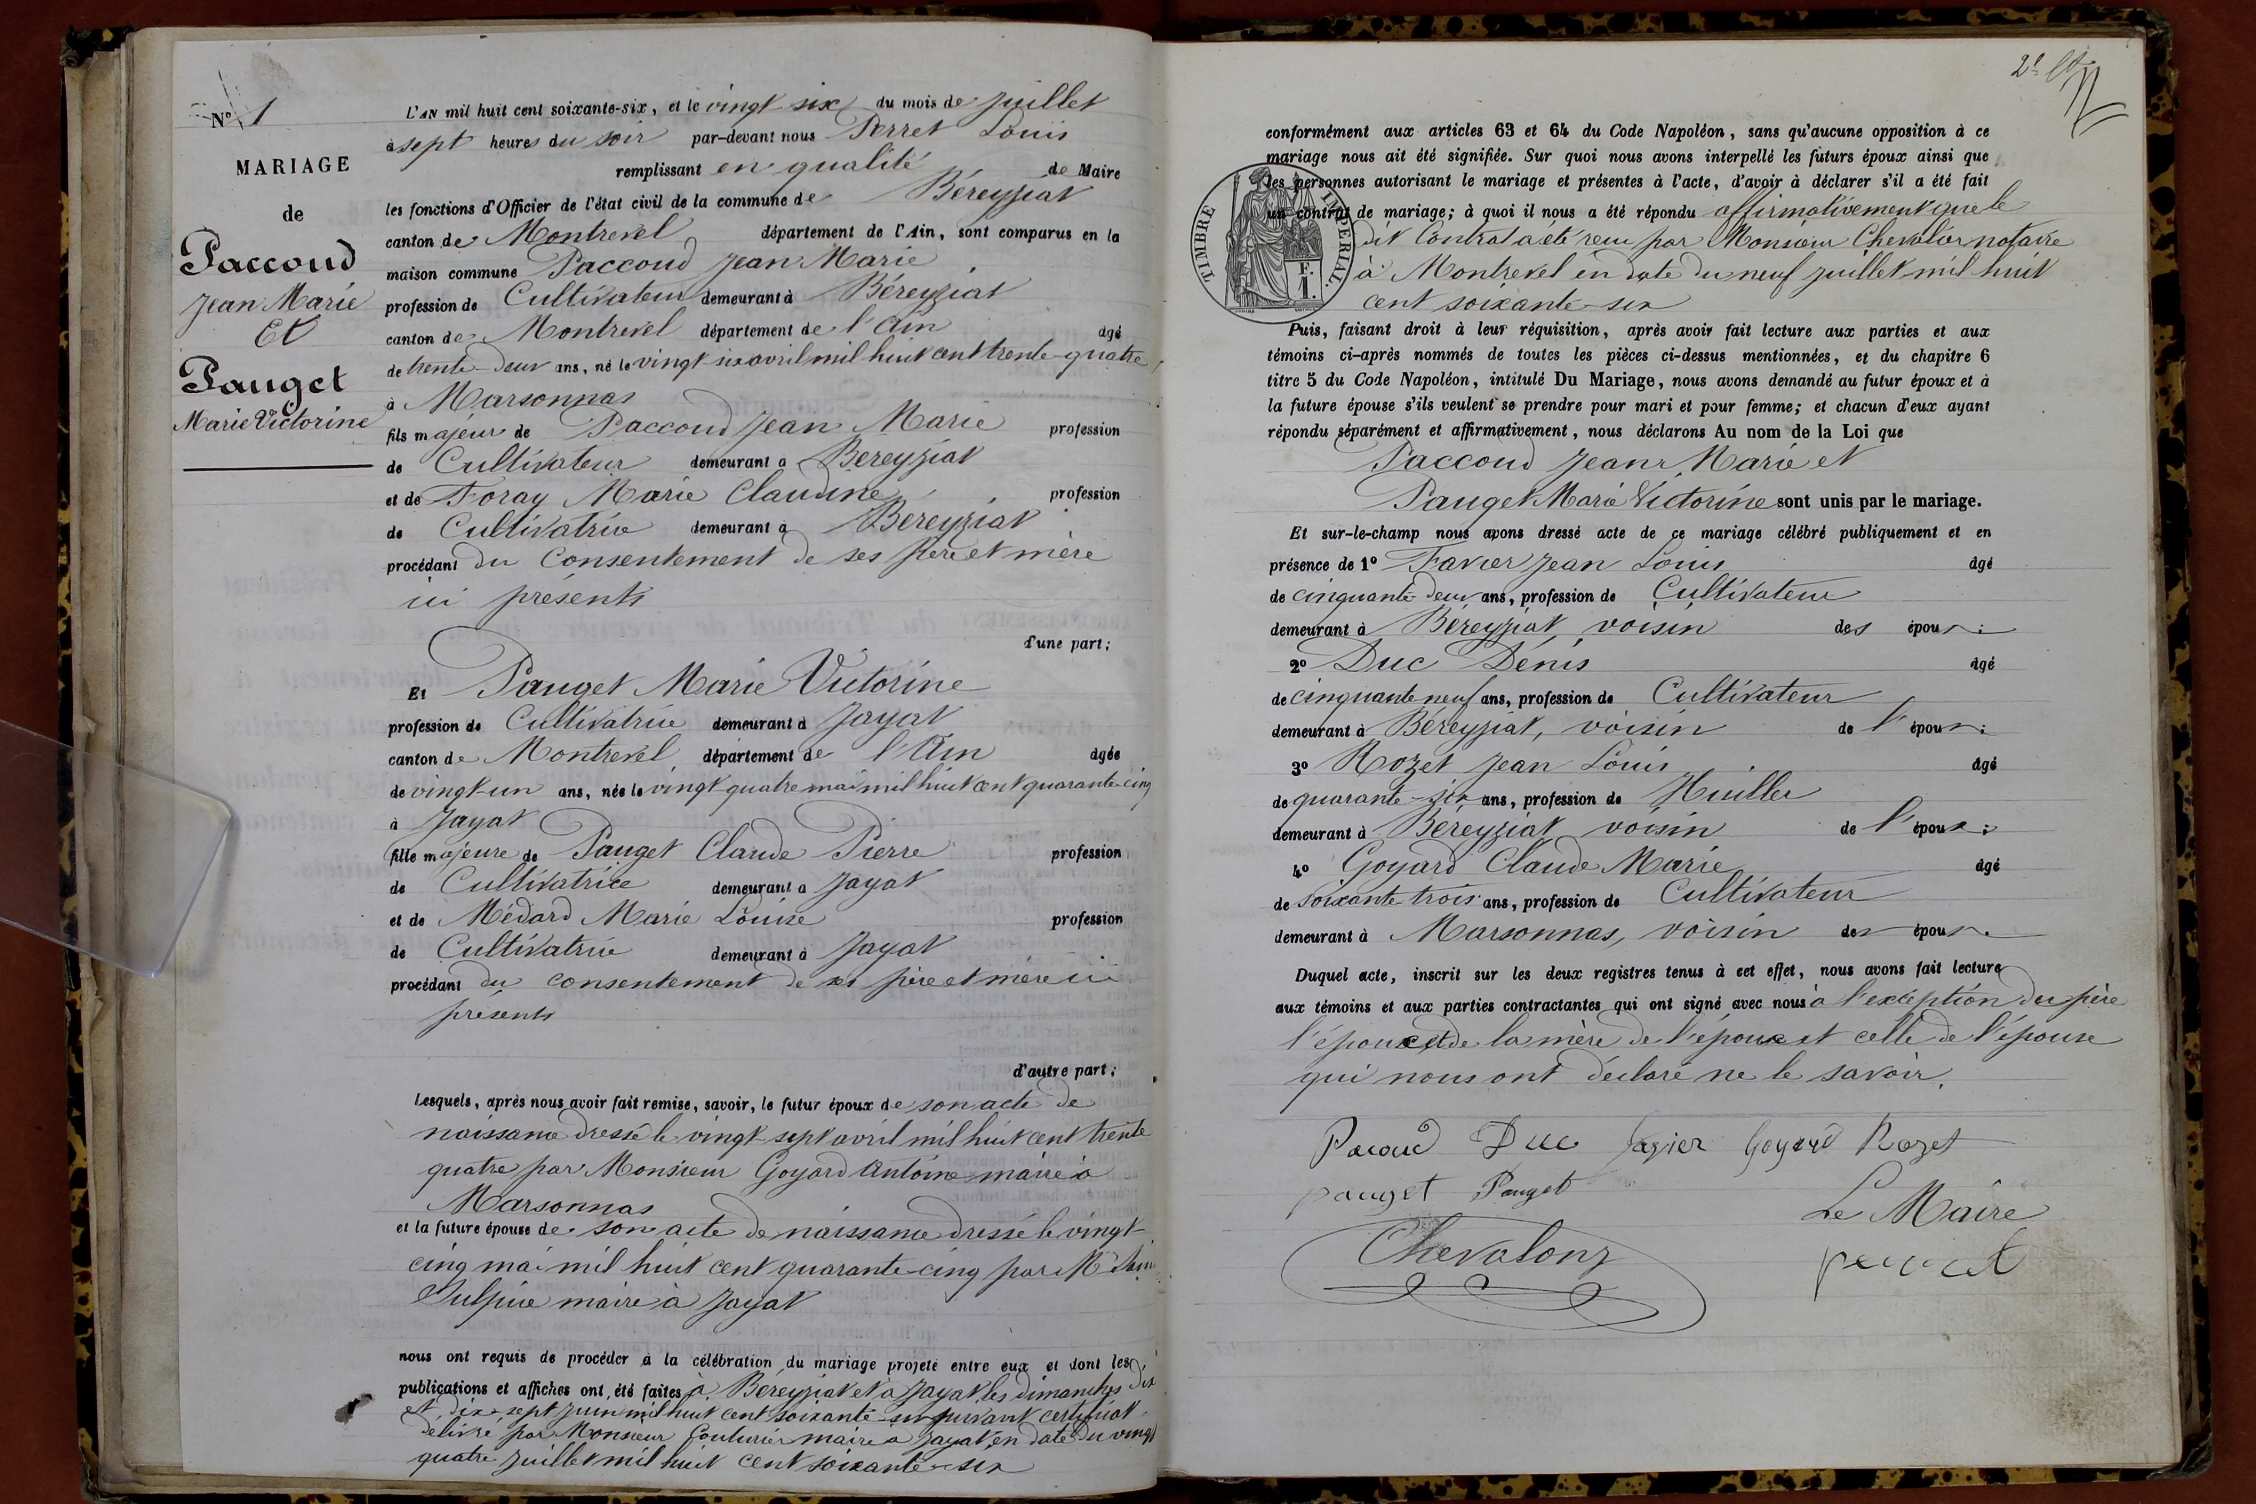 N° 1
MARIAGE
de
Paccoud
Jean Marie
Et
Pauget
Marie Victorine
L'AN mil huit cent soixante-six, et le vingt six du mois de Juillet
à sept heures du soir par-devant nous Perret Louis
remplissant en qualité de Maire
les fonctions d'Officier de l'état civil de la commune de Béreyziat
canton de Montrevel département de l'Ain, sont comparus en la
maison commune Paccoud Jean Marie
profession de Cultivateur demeurant à Béreyziat
canton de Montrevel département de l'Ain âgé
de trente-deux ans, né le vingt-six avril mil huit cent trente-quatre
à Marsonnas
fils majeur de Paccoud Jean Marie profession
de Cultivateur demeurant à Béreyziat
et de Foray Marie Claudine profession
de Cultivatrice demeurant à Béreyziat
procédant du consentement de ses père et mère
ici présents
d'une part;
Et Pauget Marie Victorine
profession de Cultivatrice demeurant à Jayat
canton de Montrevel département de l'Ain âgée
de vingt-un ans, née le vingt quatre mai mil huit cent quarante-cinq
à Jayat
fille majeure de Pauget Claude Pierre profession
de Cultivatrice demeurant à Jayat
et de Médard Marie Louise profession
de Cultivatrice demeurant à Jayat
procédant du consentement de ses père et mère ici
présents
d'autre part;
Lesquels, après nous avoir fait remise, savoir, le futur époux de son acte de
naissance dressé le vingt-sept avril mil huit cent trente
quatre par Monsieur Goyard Antoine maire à
Marsonnas
et la future épouse de son acte de naissance dressé le vingt-
cinq mai mil huit cent quarante-cinq par Mr
Sulpice maire à Jayat
nous ont requis de procéder à la célébration du mariage projeté entre eux et dont les
publications et affiches ont été faites à Béreyziat et à Jayat les dimanches dix
et dix-sept juin mil huit cent soixante-six suivant certificat
délivré par Monsieur Couturier maire à Jayat en date du vingt
quatre Juillet mil huit cent soixante-six
conformément aux articles 63 et 64 du Code Napoléon, sans qu'aucune opposition à ce
mariage nous ait été signifiée. Sur quoi nous avons interpellé les futurs époux ainsi que
les personnes autorisant le mariage et présentes à l'acte, d'avoir à déclarer s'il a été fait
un contrat de mariage; à quoi il nous a été répondu affirmativement que le
dit Contrat a été reçu par Monsieur Chevalier notaire
à Montrevel en date du neuf Juillet mil huit
cent soixante-six
TIMBRE IMPÉRIAL.
F.
1.
Puis, faisant droit à leur réquisition, après avoir fait lecture aux parties et aux
témoins ci-après nommés de toutes les pièces ci-dessus mentionnées, et du chapitre 6
titre 5 du Code Napoléon, intitulé Du Mariage, nous avons demandé au futur époux et à
la future épouse s'ils veulent se prendre pour mari et pour femme; et chacun d'eux ayant
répondu séparément et affirmativement, nous déclarons Au nom de la Loi que
Paccoud Jean Marie et
Pauget Marie Victorine sont unis par le mariage.
Et sur-le-champ nous avons dressé acte de ce mariage célébré publiquement et en
présence de 1° Favier Jean Louis âgé
de cinquante deux ans, profession de Cultivateur
demeurant à Béreyziat, voisin des époux;
2° Duc Denis âgé
de cinquante neuf ans, profession de Cultivateur
demeurant à Béreyziat, voisin de l'époux;
3° Rozet Jean Louis âgé
de quarante-six ans, profession de Huiller
demeurant à Béreyziat voisin de l'époux;
4° Goyard Claude Marie âgé
de soixante-trois ans, profession de Cultivateur
demeurant à Marsonnas, voisin des époux.
Duquel acte, inscrit sur les deux registres tenus à cet effet, nous avons fait lecture
aux témoins et aux parties contractantes qui ont signé avec nous à l'exception du père
l'époux et de la mère de l'époux et celle de l'épouse
qui nous ont déclaré ne le savoir.
Pacoud Duc favier Goyard Rozet
pauget Pauget Le Maire
Chevalon perret